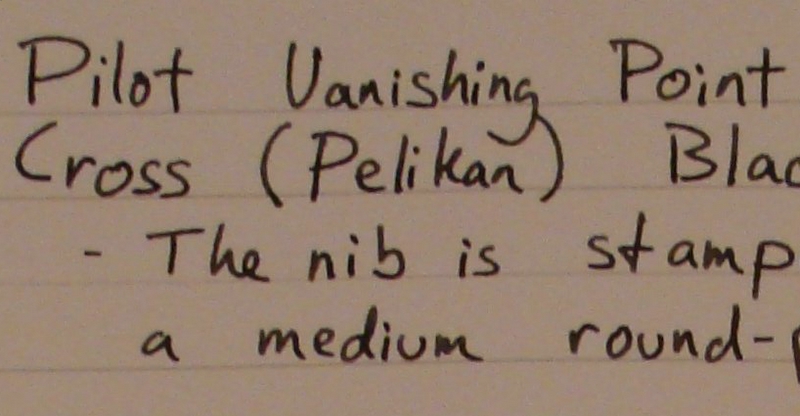 Pilot Vanishing Point
Cross (Pelikan) Blac
- The nib is stamp
a medium round-